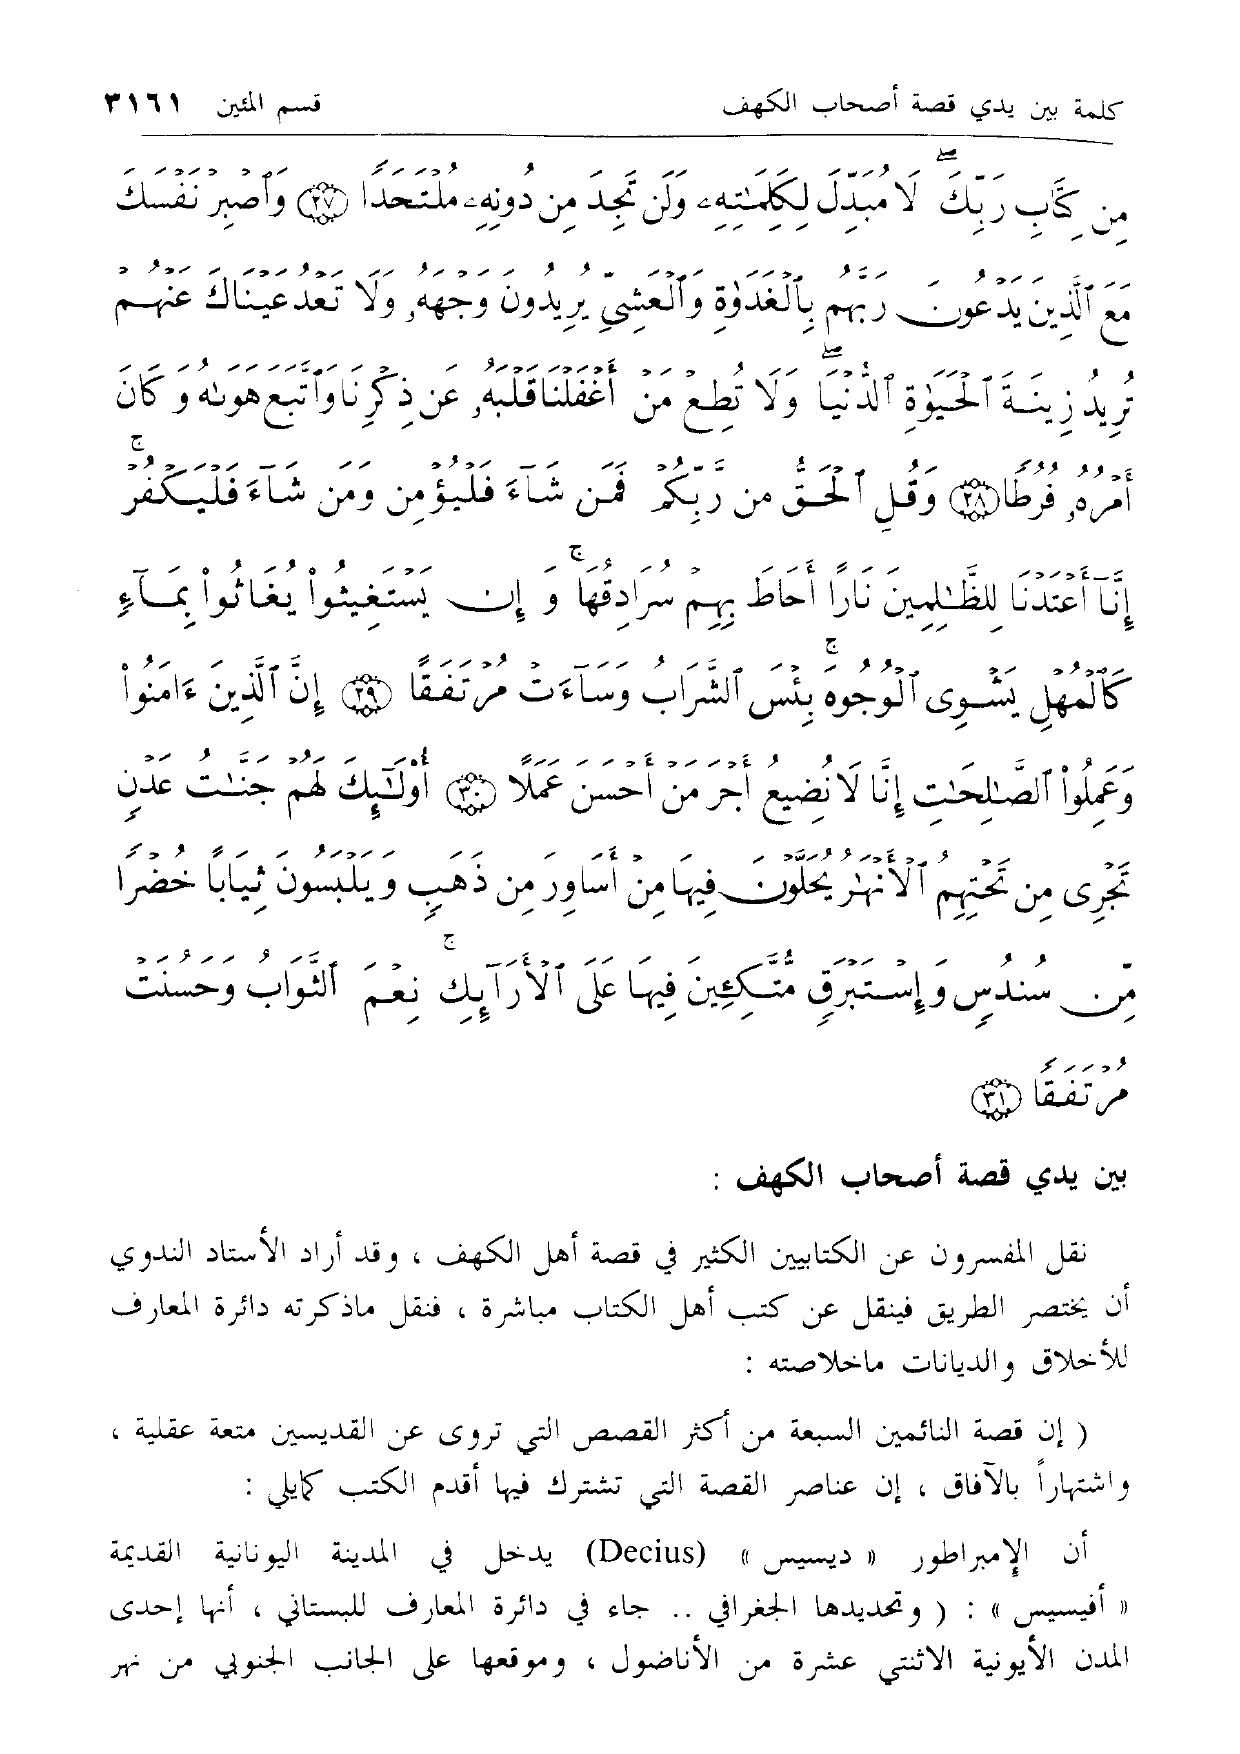 كلمة بين يدي قصة أصحاب الكهف قسم المئين ٣١٦١
مِن كِتَابِ رَبِّكَ ۖ لَا مُبَدِّلَ لِكَلِمَٰتِهِۦ وَلَن تَجِدَ مِن دُونِهِۦ مُلْتَحَدًا ٢٧ وَٱصْبِرْ نَفْسَكَ
مَعَ ٱلَّذِينَ يَدْعُونَ رَبَّهُم بِٱلْغَدَوٰةِ وَٱلْعَشِيِّ يُرِيدُونَ وَجْهَهُۥ وَلَا تَعْدُ عَيْنَاكَ عَنْهُمْ
تُرِيدُ زِينَةَ ٱلْحَيَوٰةِ ٱلدُّنْيَا ۖ وَلَا تُطِعْ مَنْ أَغْفَلْنَا قَلْبَهُۥ عَن ذِكْرِنَا وَٱتَّبَعَ هَوَىٰهُ وَكَانَ
أَمْرُهُۥ فُرُطًا ٢٨ وَقُلِ ٱلْحَقُّ مِن رَّبِّكُمْ فَمَن شَآءَ فَلْيُؤْمِن وَمَن شَآءَ فَلْيَكْفُرْ ۚ
إِنَّآ أَعْتَدْنَا لِلظَّٰلِمِينَ نَارًا أَحَاطَ بِهِمْ سُرَادِقُهَا ۚ وَإِن يَسْتَغِيثُوا۟ يُغَاثُوا۟ بِمَآءٍ
كَٱلْمُهْلِ يَشْوِى ٱلْوُجُوهَ ۚ بِئْسَ ٱلشَّرَابُ وَسَآءَتْ مُرْتَفَقًا ٢٩ إِنَّ ٱلَّذِينَ ءَامَنُوا۟
وَعَمِلُوا۟ ٱلصَّٰلِحَٰتِ إِنَّا لَا نُضِيعُ أَجْرَ مَنْ أَحْسَنَ عَمَلًا ٣٠ أُو۟لَٰٓئِكَ لَهُمْ جَنَّٰتُ عَدْنٍ
تَجْرِى مِن تَحْتِهِمُ ٱلْأَنْهَٰرُ يُحَلَّوْنَ فِيهَا مِنْ أَسَاوِرَ مِن ذَهَبٍ وَيَلْبَسُونَ ثِيَابًا خُضْرًا
مِّن سُندُسٍ وَإِسْتَبْرَقٍ مُّتَّكِـِٔينَ فِيهَا عَلَى ٱلْأَرَآئِكِ ۚ نِعْمَ ٱلثَّوَابُ وَحَسُنَتْ
مُرْتَفَقًا ٣١
بين يدي قصة أصحاب الكهف :
نقل المفسرون عن الكتابيين الكثير في قصة أهل الكهف ، وقد أراد الأستاذ الندوي
أن يختصر الطريق فينقل عن كتب أهل الكتاب مباشرة ، فنقل ماذكرته دائرة المعارف
للأخلاق والديانات ماخلاصته :
( إن قصة النائمين السبعة من أكثر القصص التي تروى عن القديسين متعة عقلية ،
واشتهاراً بالآفاق ، إن عناصر القصة التي تشترك فيها أقدم الكتب كمايلي :
أن الإمبراطور « ديسيس » (Decius) يدخل في المدينة اليونانية القديمة
« أفيسيس » : ( وتحديدها الجغرافي .. جاء في دائرة المعارف للبستاني ، أنها إحدى
المدن الأيونية الاثنتي عشرة من الأناضول ، وموقعها على الجانب الجنوبي من نهر